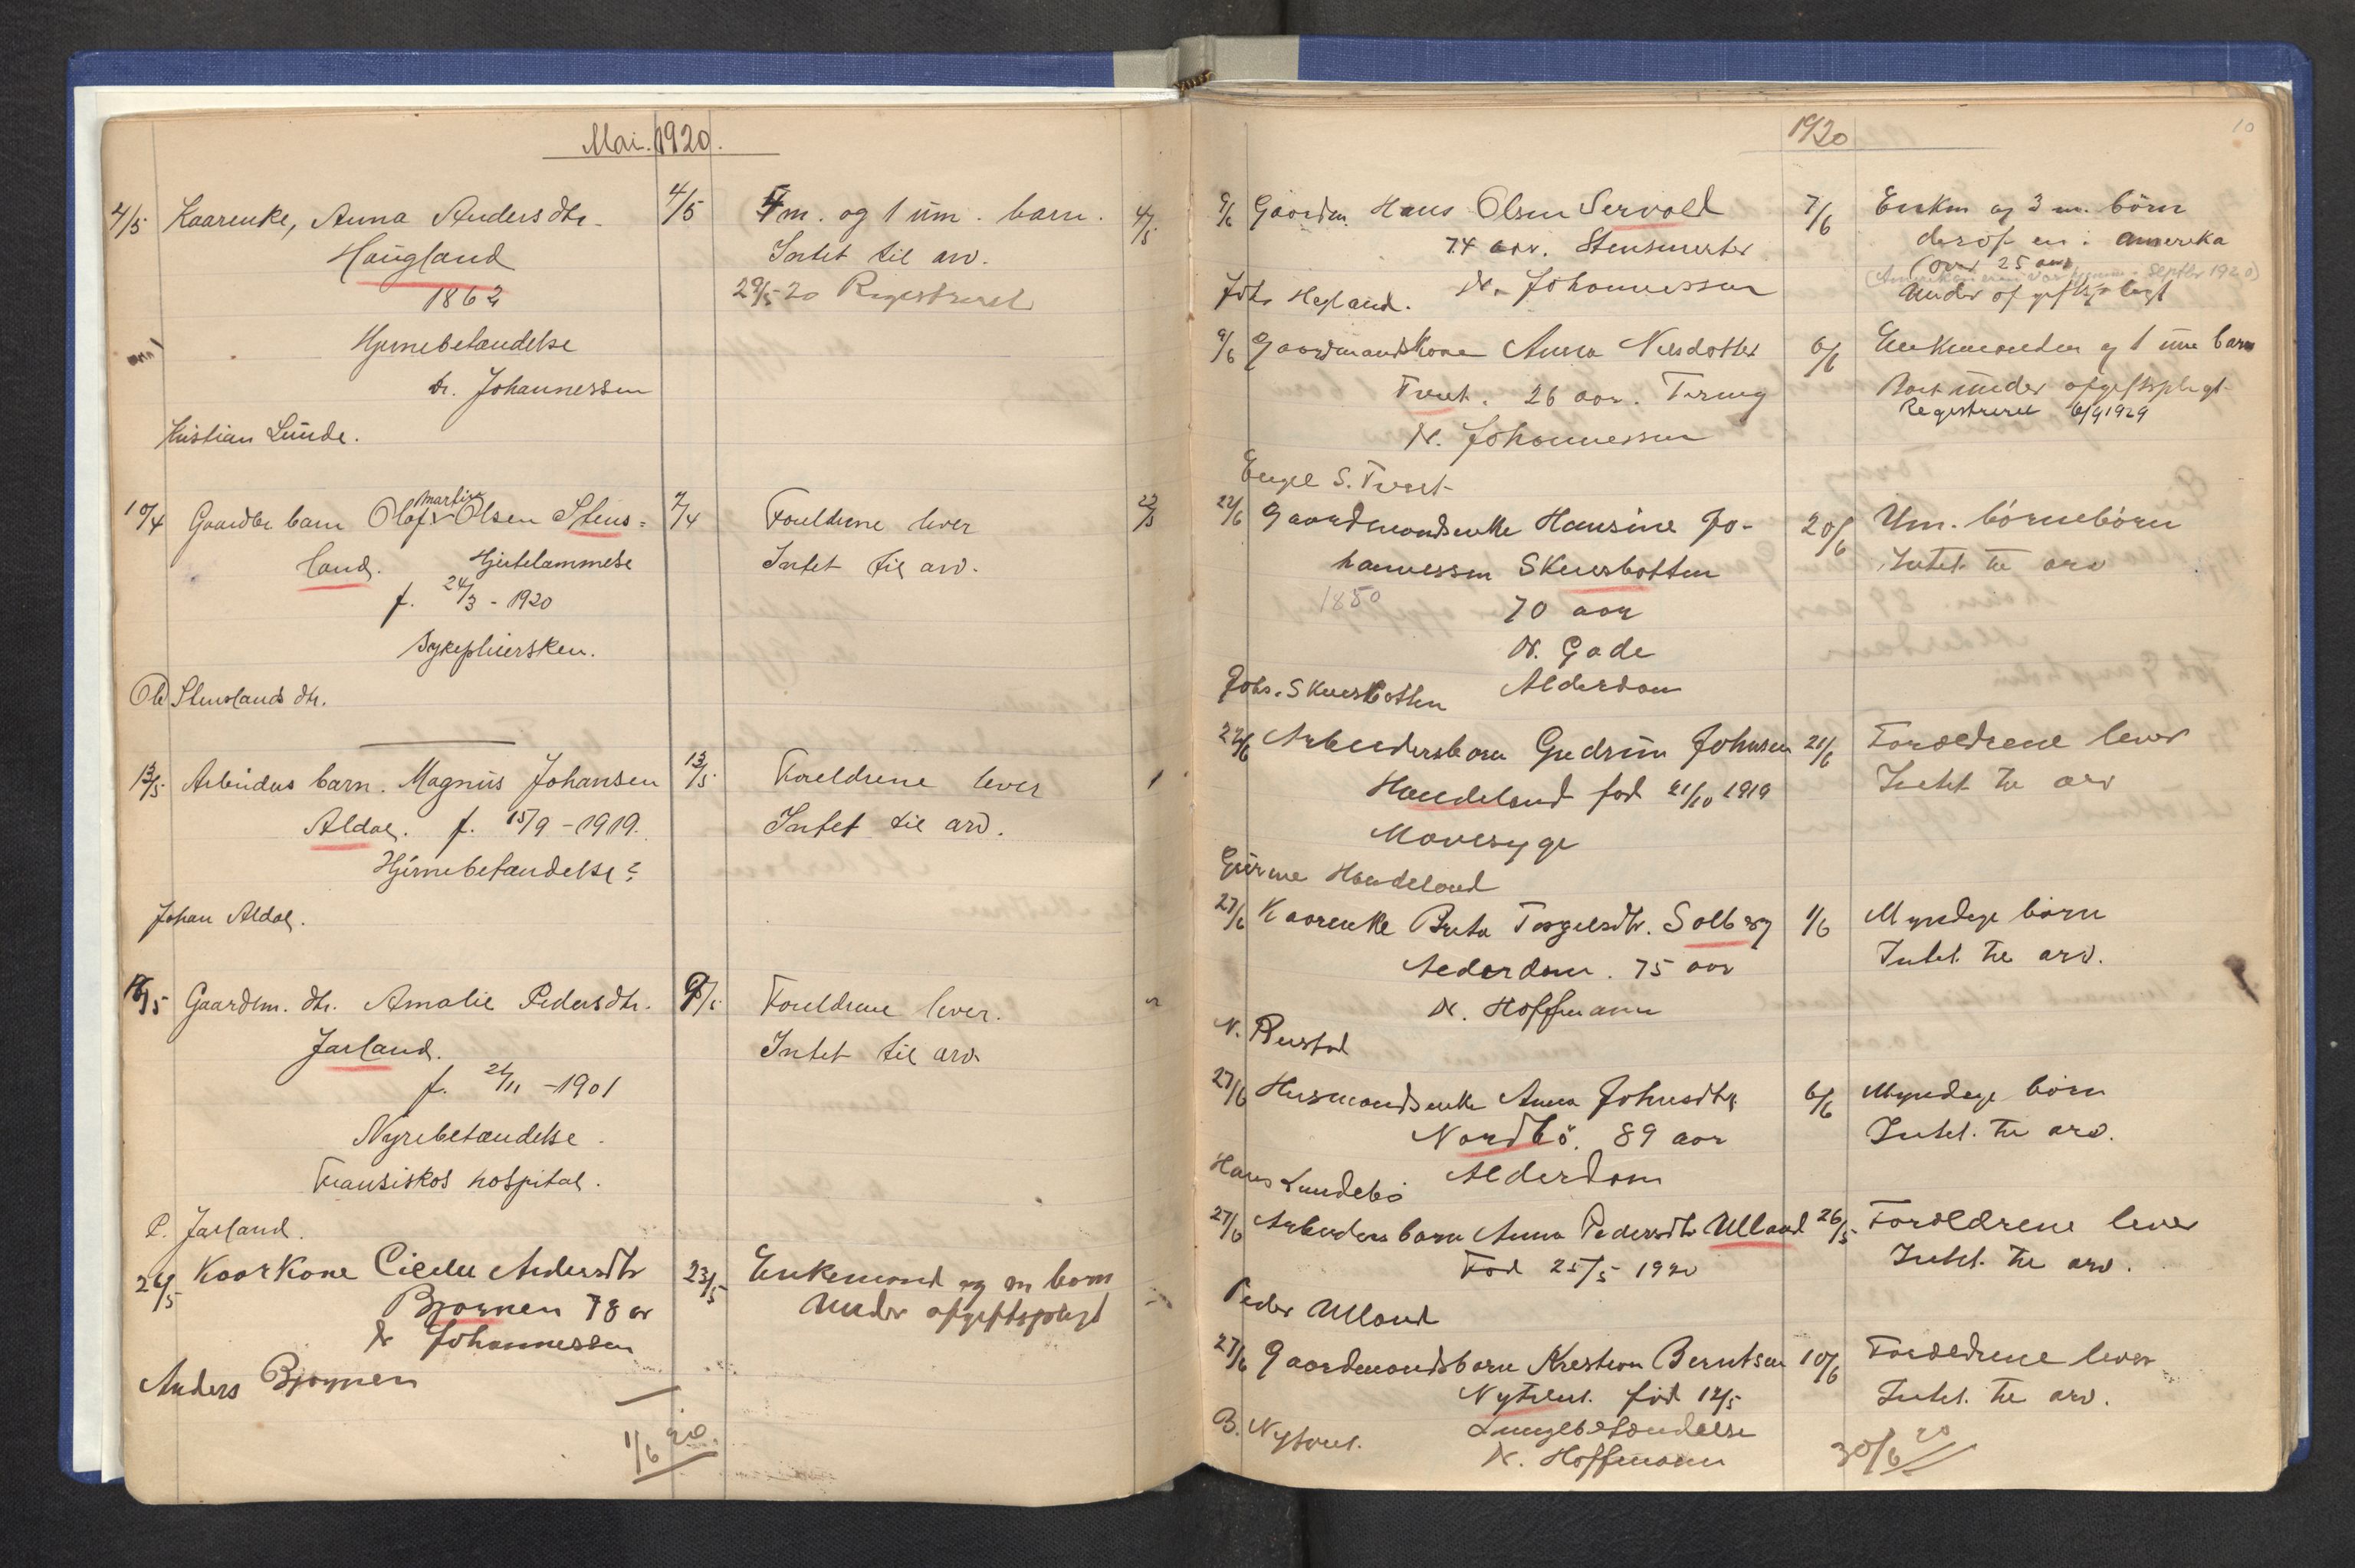 Mai. 1920.
4/5 Kaarenke, Anna Andersdtr. 4/5 4 m. og 1 um. barn. 4/5
Haugland Intet til arv.
1862 29/5 20 Registreret
Hjernebetændelse
dr. Johannessen
Kristian Lunde.
10/4 Gaardbr barn Olaf Martin Olsen Stens= 7/4 Foreldrene lever 22/5
land. Hjertelammelse Intet til arv.
f. 24/3 - 1920
Sykepleiersken.
Ole Stensland dtr.
13/5 Arbeider barn. Magnus Johansen 13/5 Foreldrene lever
Aldal. f. 15/9 - 1919. Intet til arv.
Hjernebetændelse?
Johan Aldal.
18/5 Gaardm. dtr. Amalie Pedersdtr. 9/5 Foreldrene lever.
Jarland. Intet til arv.
f. 21/11 - 1901
Nyrebetændelse.
Fransiskos hospital.
P. Jarland.
26/5 Kaarkone Cicelie Andersdtr 23/5 Enkemand og m barn
Bjørnen 78 år Under afgiftspligt
dr Johannessen
Anders Bjørnen
1/6 20.
1920
10
9/6 Gaardm. Hans Olsen Servold 7/6 Enken og 3 m. börn
74 aar. Stensmerter derof en i Amerika
(over 25 aar)
Johs Hegland. Dr. Johannessen Under afgiftspligt
9/6 Gaardmandskone Anna Nilsdotter 6/6 Enkemanden og 1 um barn
Tveit. 26 aar. Tæring Boet under afgiftspligt
Dr. Johannessen Registreret 6/9 1929
Engel S. Tveit
22/6 Gaardmandsenke Hansine Jo- 20/6 Um. börnebörn
hannessen Skeiesbotten Intet til arv
1850 70 aar
Dr. Gade
Johs. Skeiesbotten Alderdom
22/6 Arbeidersbarn Gudrun Johnsen 21/6 Foreldrene lever
Handeland fød 21/10 1919 Intet til arv
Mavesyge
Handeland
27/6 Kaarenke Berta Torgelsdtr. Solberg 1/6 Myndige börn
Alderdom. 75 aar Intet til arv.
Dr. Hoffmann
N. Rustad
27/6 Husmandsenke Anna Johnsdtr 6/6 Myndige börn
Nordbö. 89 aar Intet til arv.
Hans Lundebö Alderdom
27/6 Arbeiders barn Anna Pedersdtr Ulland 26/5 Foreldrene lever
Fød 25/5 1920 Intet til arv.
Peder Ulland
27/6 Gaardmandsbarn Krestian Berntsen 10/6 Foreldrene lever
Nytveit. fød 12/5 Intet til arv.
B. Nytveit. Lungebetændelse
Dr. Hoffmann 30/6 20